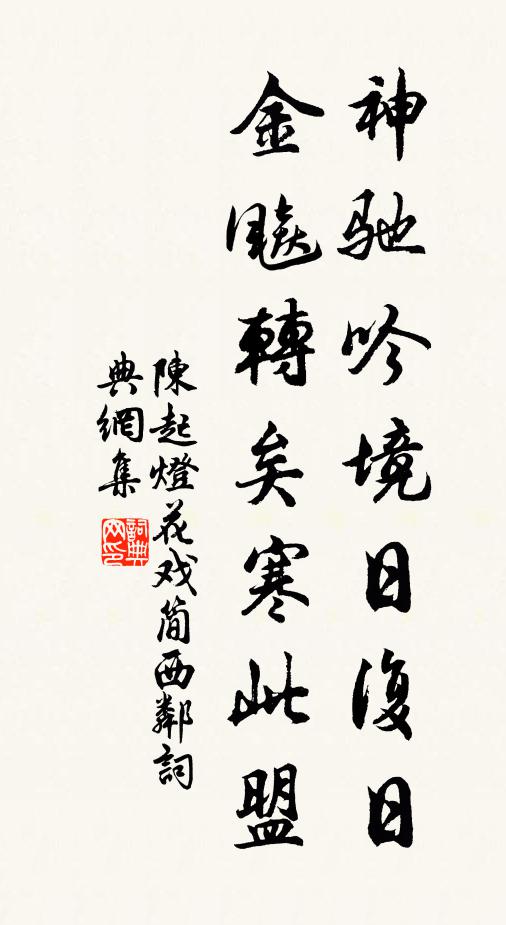 神馳吟境日復日
金飈轉矣寒此盟
陳起燈花戏简西鄰詞
典網集
詞典网印